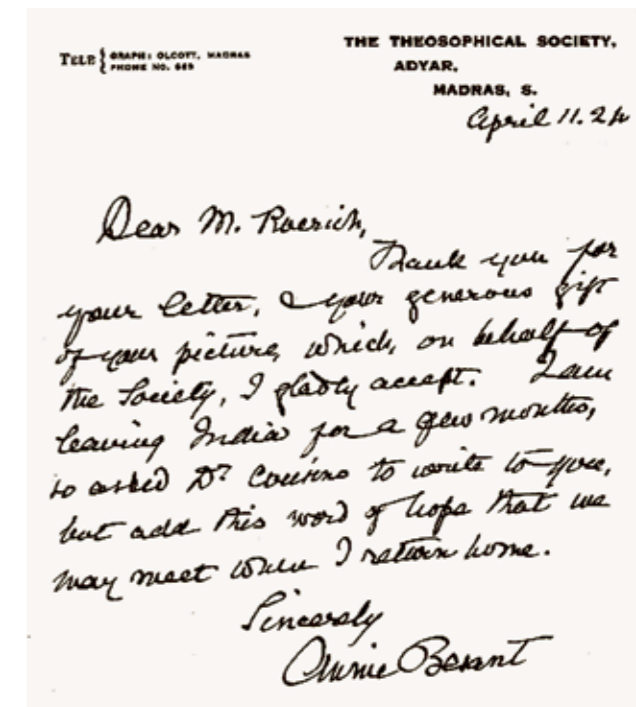 TELE { GRAPH: OLCOTT, MADRAS
PHONE NO. 669
THE THEOSOPHICAL SOCIETY,
ADYAR,
MADRAS, S.
April 11. 24
Dear M. Roerich,
Thank you for
your letter, & your generous gift
of your picture, which, on behalf of
the Society, I gladly accept. I am
leaving India for a few months,
so asked Dr. Cousins to write to you,
but add this word of hope that we
may meet when I return home.
Sincerely
Annie Besant